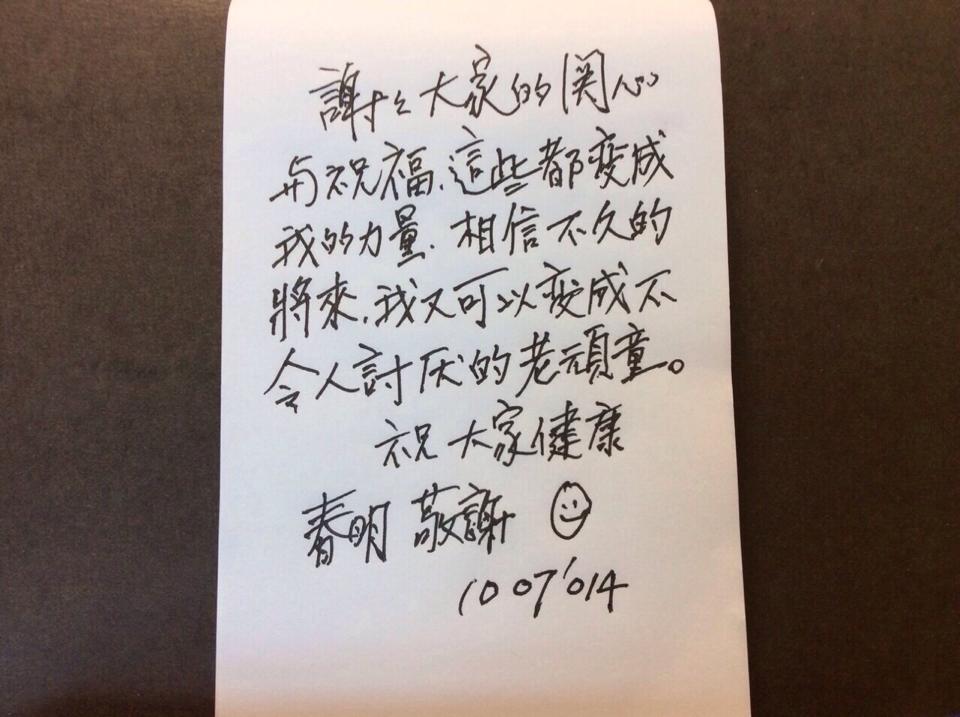 謝々大家的関心
与祝福、這些都变成
我的力量. 相信不久的
將來,我又可以变成不
令人討厌的老頑童。
祝大家健康
春明 敬謝
10 07'014